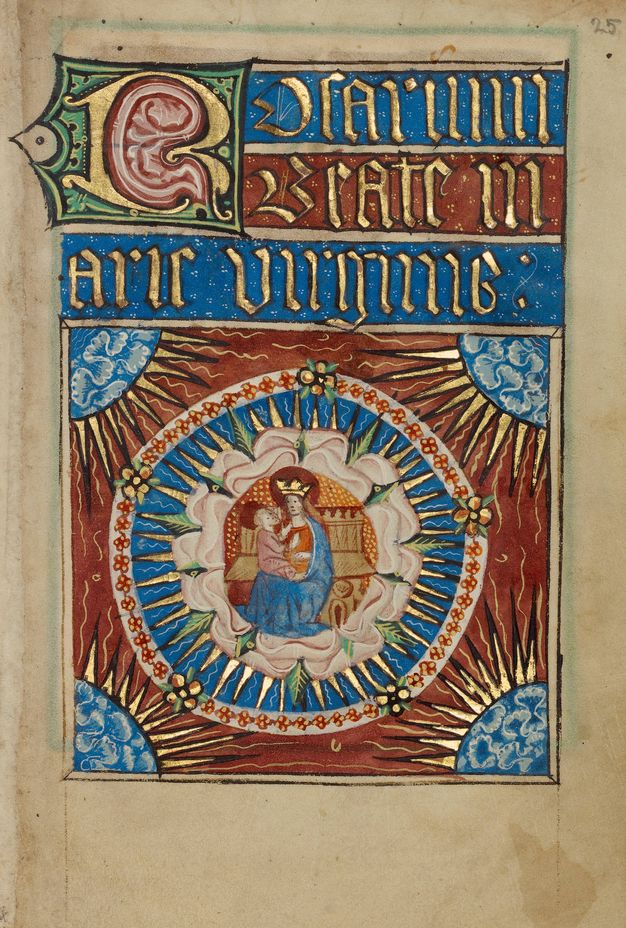 25
Rosarium
Beate m
arie virginis: